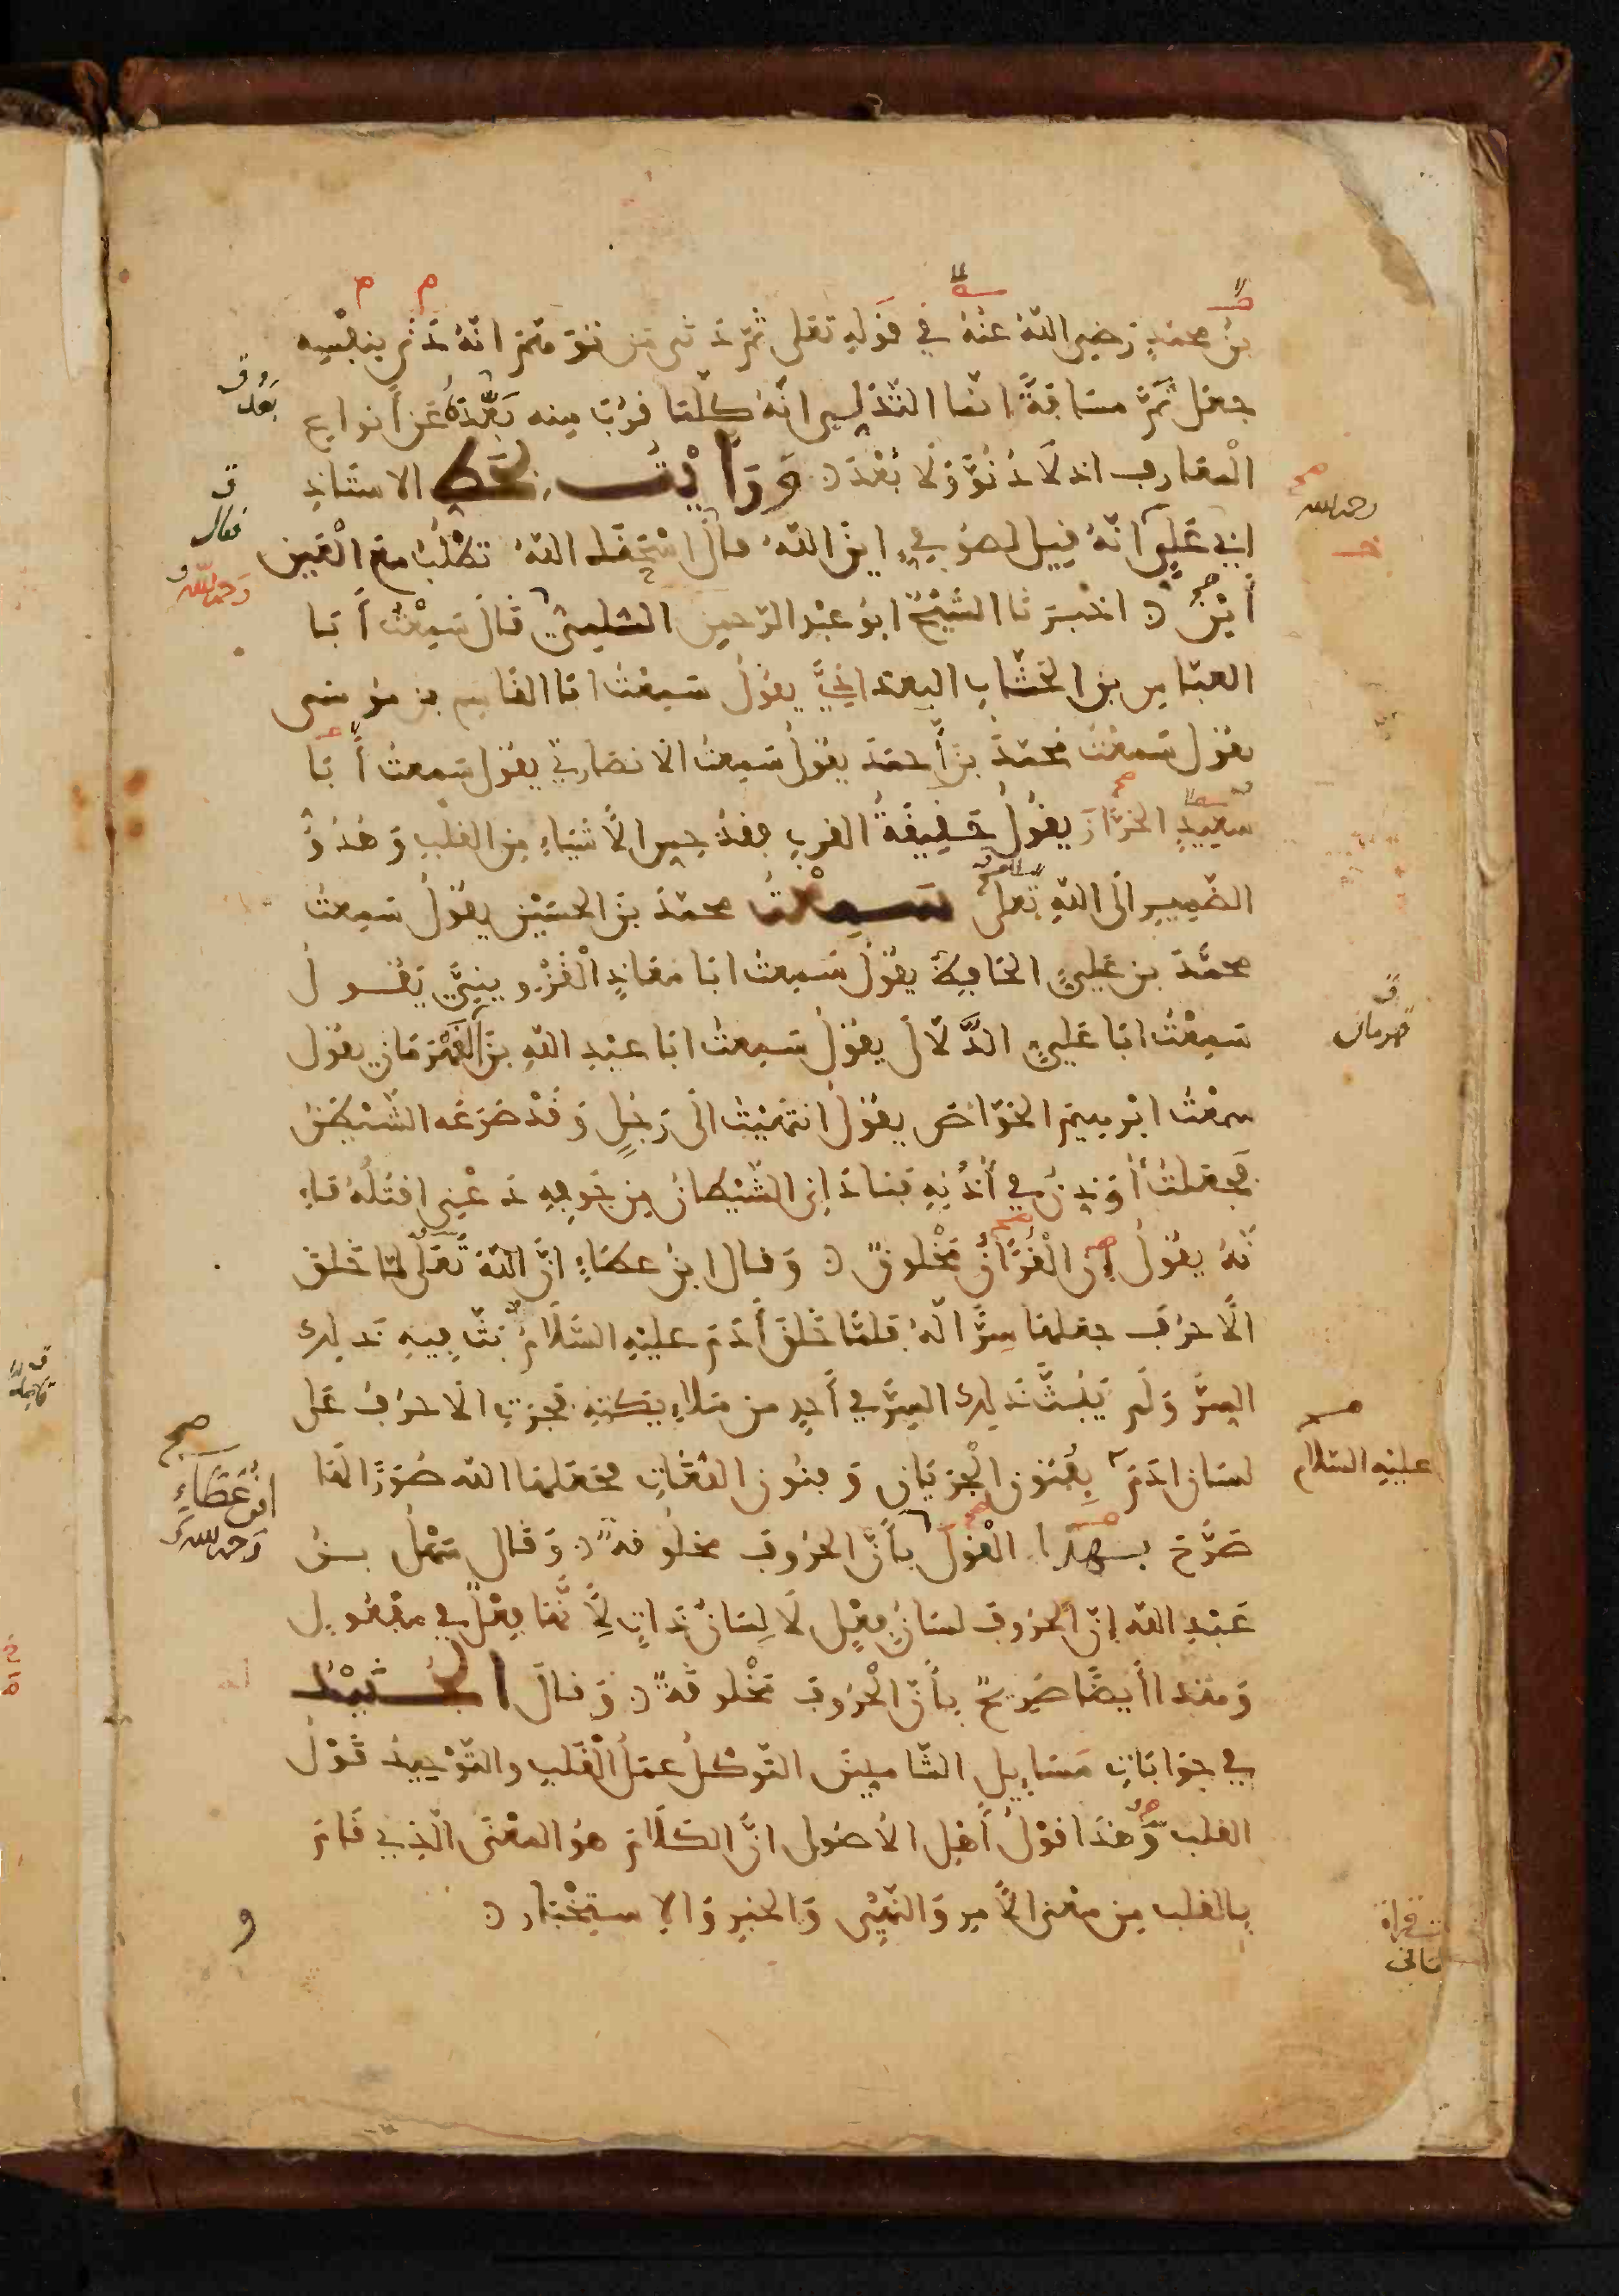 بن محمد رضي الله عنه في قوله تعلى ثم دنى من توهم انه دنى بنفسه
جعل ثم مسافة انما التدلي انه كلما قرب منه بعده عن أنواع
المعارف اذ لا دنو ولا بعد ورأيت بخط الاستاذ
ابي علي انه قيل لصوفي اين الله فقال اسحقك الله تطلب مع العين
أين اخبرنا الشيخ ابو عبد الرحمن السلمي قال سمعت أبا
العباس بن الخشاب البغداذي يقول سمعت ابا القاسم بن موسى
يقول سمعت محمد بن أحمد يقول سمعت الانصاري يقول سمعت أبا
سعيد الخراز يقول حقيقة القرب فقد حس الأشياء من القلب وهدو
الضمير الى الله تعلى سمعت محمد بن الحسين يقول سمعت
محمد بن علي الحافظ يقول سمعت ابا معاذ القزويني يقول
سمعت ابا علي الدلال يقول سمعت ابا عبد الله بن القهرمان يقول
سمعت ابرهيم الخواص يقول انتهيت الى رجل وقد صرعه الشيطن
فجعلت أوذن في أذنه فناداني الشيطان من جوفه دعني اقتله فا
نه يقول إن القرءان مخلوق وقال ابن عطاء ان الله تعلى لما خلق
الاحرف جعلها سرا له فلما خلق أدم عليه السلام بث فيه ذلك
السر ولم يبث ذلك السر في أحد من ملائكته فجرت الاحرف على
لسان ادم بفنون الجريان وفنون اللغات فجعلها الله صورا لها
صرح بهذا القول بأن الحروف مخلوقة وقال سهل بن
عبد الله إن الحروف لسان فعل لا لسان ذات لأنها فعل في مفعول
وهذا أيضا صريح بأن الحروف مخلوقة وقال الجنيد
في جوابات مسايل الشاميين التوكل عمل القلب والتوحيد قول
القلب وهذا قول أهل الأصول ان الكلام هو المعنى الذي قام
بالقلب من معنى الأمر والنهي والخبر والاستخبار
رحمه الله
قهرمان
عليه السلام
فقال
رحمه الله
صح
ابن عطاء
رحمه الله